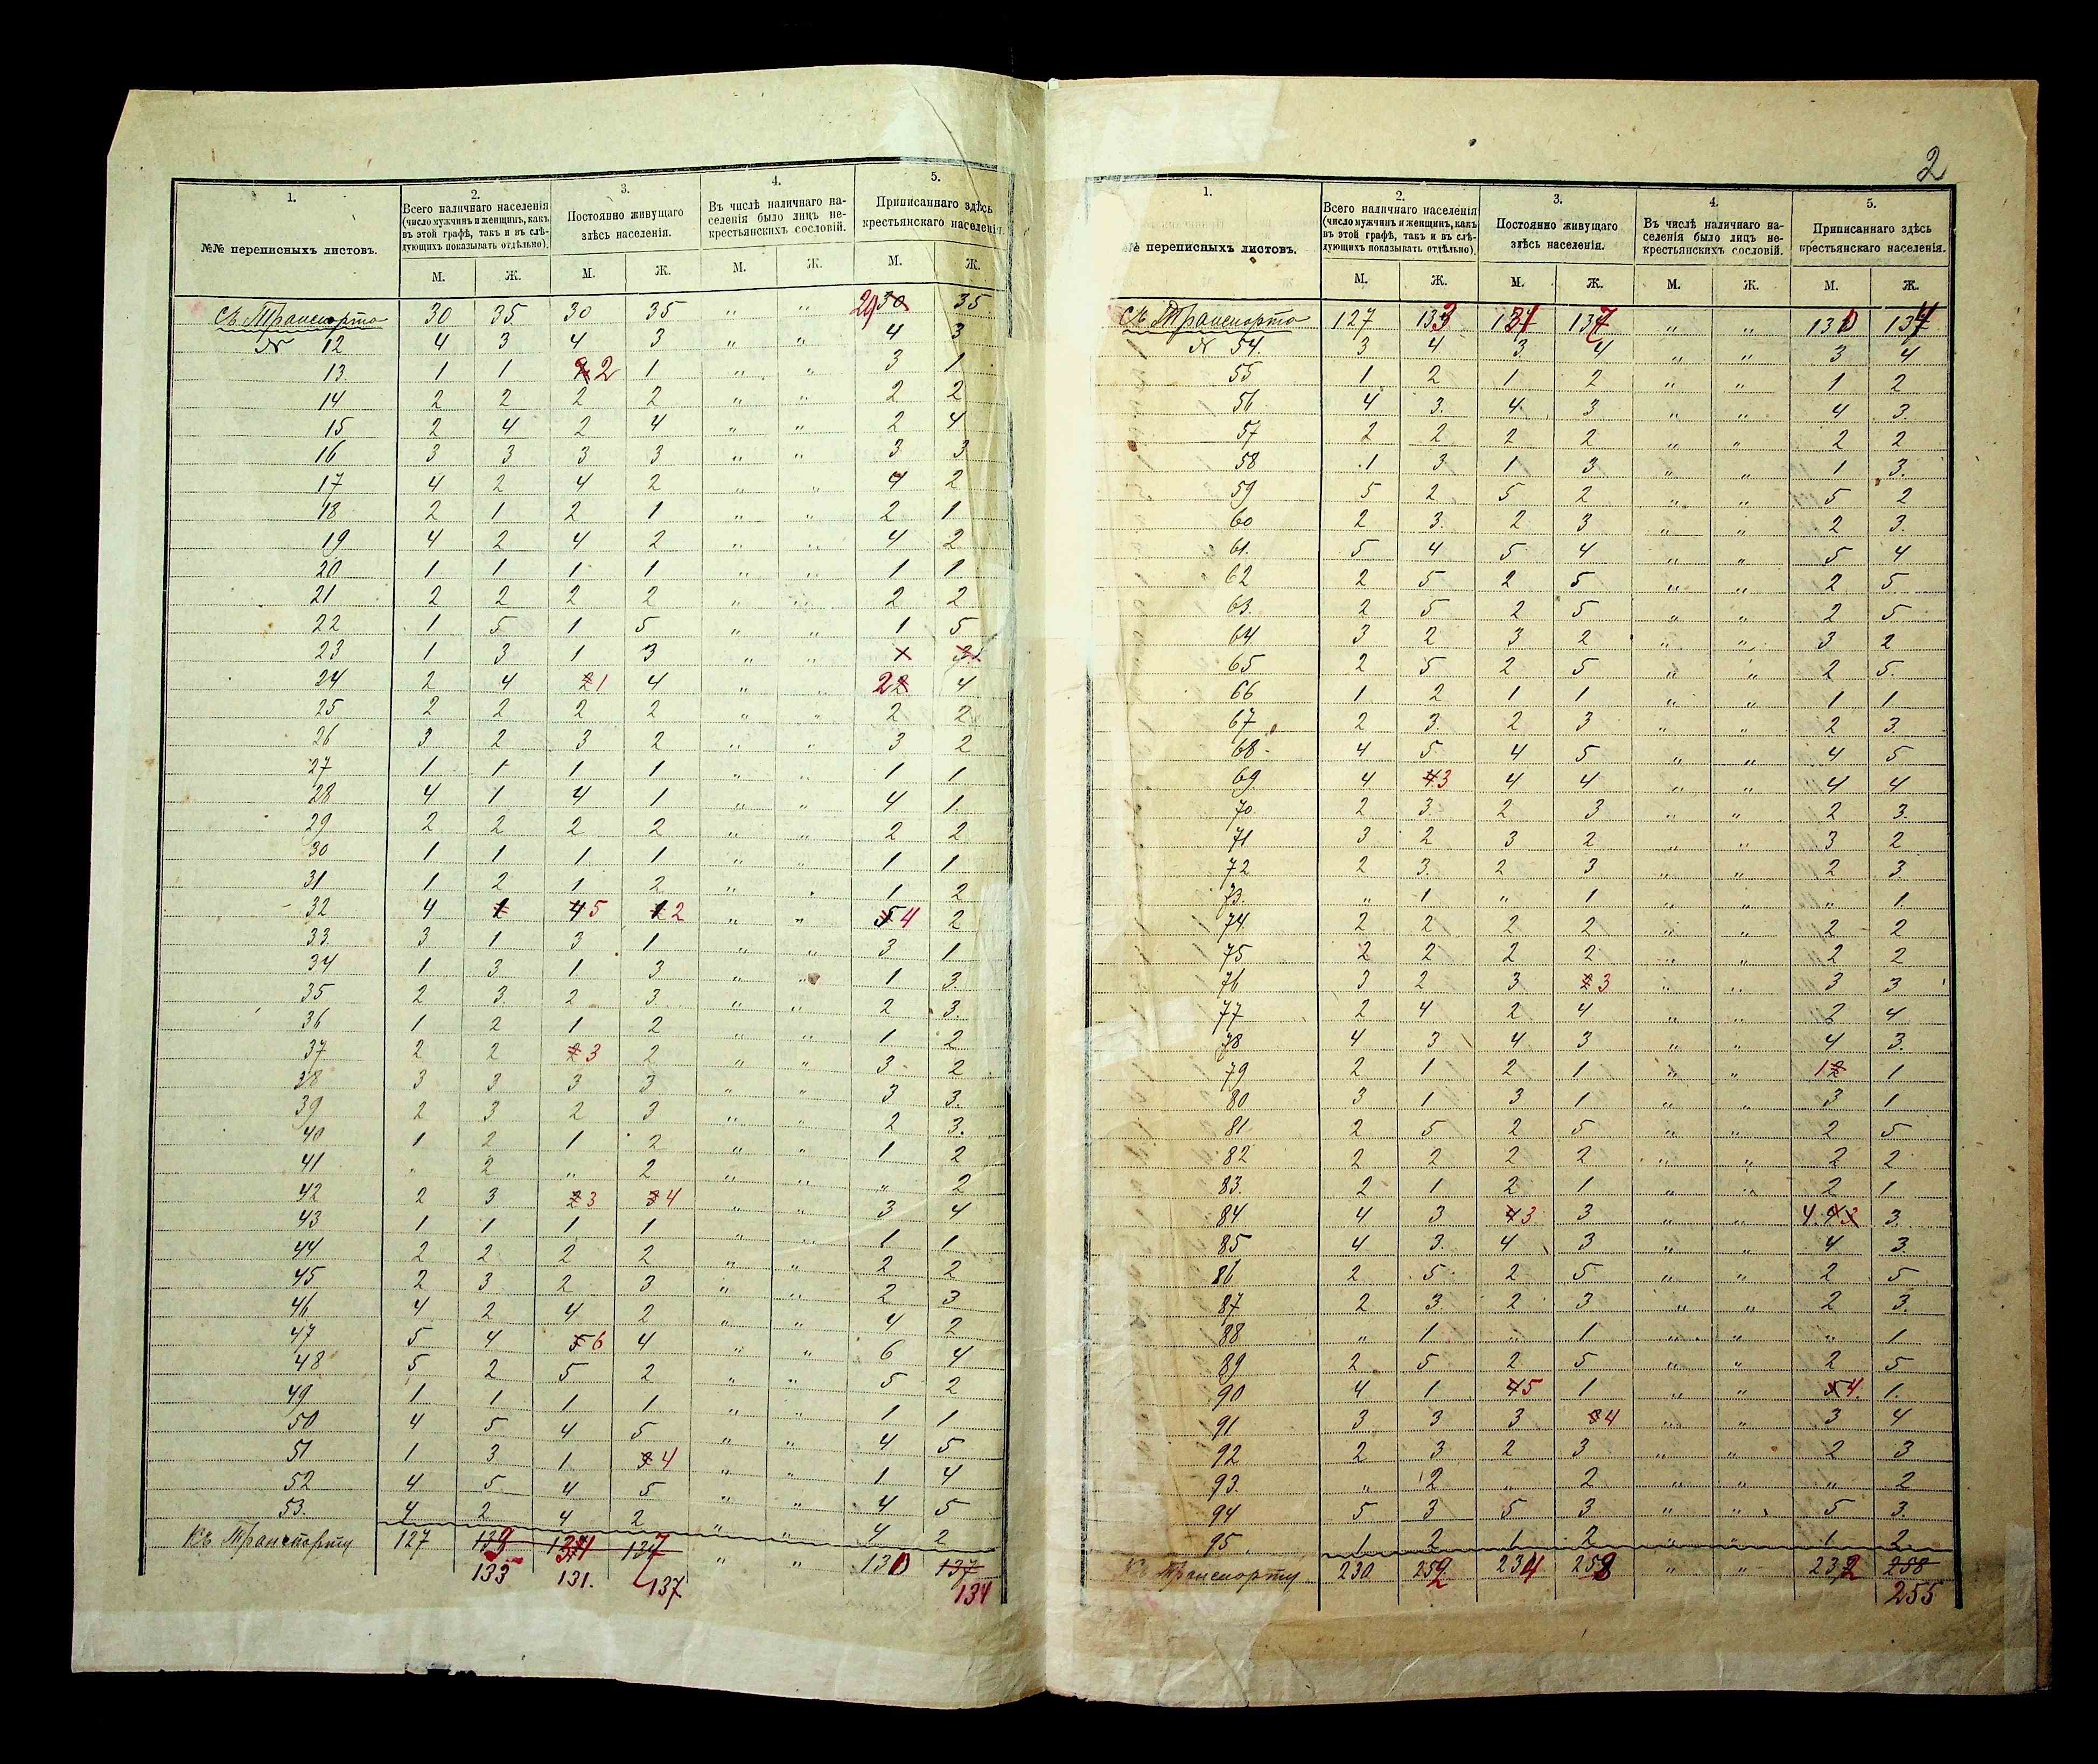 2
1. 2. 3. 4. 5.
№№ переписныхъ листовъ. Всего наличнаго населенія (число мужчинъ и женщинъ, какъ въ этой графѣ, такъ и въ слѣдующихъ показывать отдѣльно). Постоянно живущаго здѣсь населенія. Въ числѣ наличнаго населенія было лицъ некрестьянскихъ сословій. Приписаннаго здѣсь крестьянскаго населенія.
М. Ж. М. Ж. М. Ж. М. Ж.
Съ Транспорта 30 35 30 35 " " 29 30 35
№ 12 4 3 4 3 " " 4 3
13 1 1 2 1 " " 3 1
14 2 2 2 2 " " 2 2
15 2 4 2 4 " " 2 4
16 3 3 3 3 " " 3 3
17 4 2 4 2 " " 4 2
18 2 1 2 1 " " 2 1
19 4 2 4 2 " " 4 2
20 1 1 1 1 " " 1 1
21 2 2 2 2 " " 2 2
22 1 5 1 5 " " 1 5
23 1 3 1 3 " " 1 3
24 2 4 2 1 4 " " 2 2 4
25 2 2 2 2 " " 2 2
26 3 2 3 2 " " 3 2
27 1 1 1 1 " " 1 1
28 4 1 4 1 " " 4 1
29 2 2 2 2 " " 2 2
30 1 1 1 1 " " 1 1
31 1 2 1 2 " " 1 2
32 4 1 4 5 1 2 " " 5 4 2
33 3 1 3 1 " " 3 1
34 1 3 1 3 " " 1 3.
35 2 3 2 3 " " 2 3.
36 1 2 1 2 " " 1 2
37 2 2 2 3 2 " " 3 2
38 3 3 3 3 " " 3 3.
39 2 3 2 3 " " 2 3.
40 1 2 1 2 " " 1 2
41 " 2 " 2 " " " 2
42 2 3 2 3 3 4 " " 3 4
43 1 1 1 1 " " 1 1
44 2 2 2 2 " " 2 2
45 2 3 2 3 " " 2 3
46 4 2 4 2 " " 4 2
47 5 4 5 6 4 " " 6 4
48 5 2 5 2 " " 5 2
49 1 1 1 1 " " 1 1
50 4 5 4 5 " " 4 5
51 1 3 1 3 4 " " 1 4
52 4 5 4 5 " " 4 5
53. 4 2 4 2 " " 4 2
Къ Транспорту 127 133 131 137 " " 130 137
133 131. 137 134
1. 2. 3. 4. 5.
№ переписныхъ листовъ. Всего наличнаго населенія (число мужчинъ и женщинъ, какъ въ этой графѣ, такъ и въ слѣдующихъ показывать отдѣльно). Постоянно живущаго здѣсь населенія. Въ числѣ наличнаго населенія было лицъ некрестьянскихъ сословій. Приписаннаго здѣсь крестьянскаго населенія.
М. Ж. М. Ж. М. Ж. М. Ж.
Съ Транспорта 127 133 131 137 " " 130 134
№ 54. 3 4 3 4 " " 3 4
55 1 2 1 2 " " 1 2
56 4 3. 4 3 " " 4 3.
57 2 2 2 2 " " 2 2
58 1 3 1 3 " " 1 3.
59 5 2 5 2 " " 5 2
60 2 3. 2 3 " " 2 3.
61. 5 4 5 4 " " 5 4
62 2 5 2 5 " " 2 5.
63. 2 5 2 5 " " 2 5
64 3 2 3 2 " " 3 2
65 2 5 2 5 " " 2 5.
66 1 2 1 1 " " 1 1
67 2 3. 2 3 " " 2 3.
68 4 5 4 5 " " 4 5
69. 4 4 3 4 4 " " 4 4
70. 2 3. 2 3 " " 2 3.
71 3 2 3 2 " " 3 2
72 2 3. 2 3 " " 2 3.
73. " 1 " 1 " " " 1.
74. 2 2 2 2 " " 2 2
75 2 2 2 2 " " 2 2
76 3 2 3 2 3 " " 3 3
77 2 4 2 4 " " 2 4
78 4 3 4 3 " " 4 3.
79 2 1 2 1 " " 1 2 1
80 3 1 3 1 " " 3 1
81. 2 5 2 5 " " 2 5
82 2 2 2 2 " " 2 2
83. 2 1 2 1 " " 2 1
84 4 3 4 3 3 " " 4. 4 3 3.
85 4 3. 4 3 " " 4 3.
86 2 5 2 5 " " 2 5
87 2 3. 2 3 " " 2 3.
88 " 1 " 1 " " " 1
89 2 5 2 5 " " 2 5
90 4 1 4 5 1 " " 5 4. 1.
91 3 3 3 3 4 " " 3 4
92 2 3 2 3 " " 2 3
93. " 2 " 2 " " " 2
94 5 3 5 3 " " 5 3.
95 1 2 1 2 " " 1 2.
Къ Транспорту 230 252 234 258 " " 232 258
255